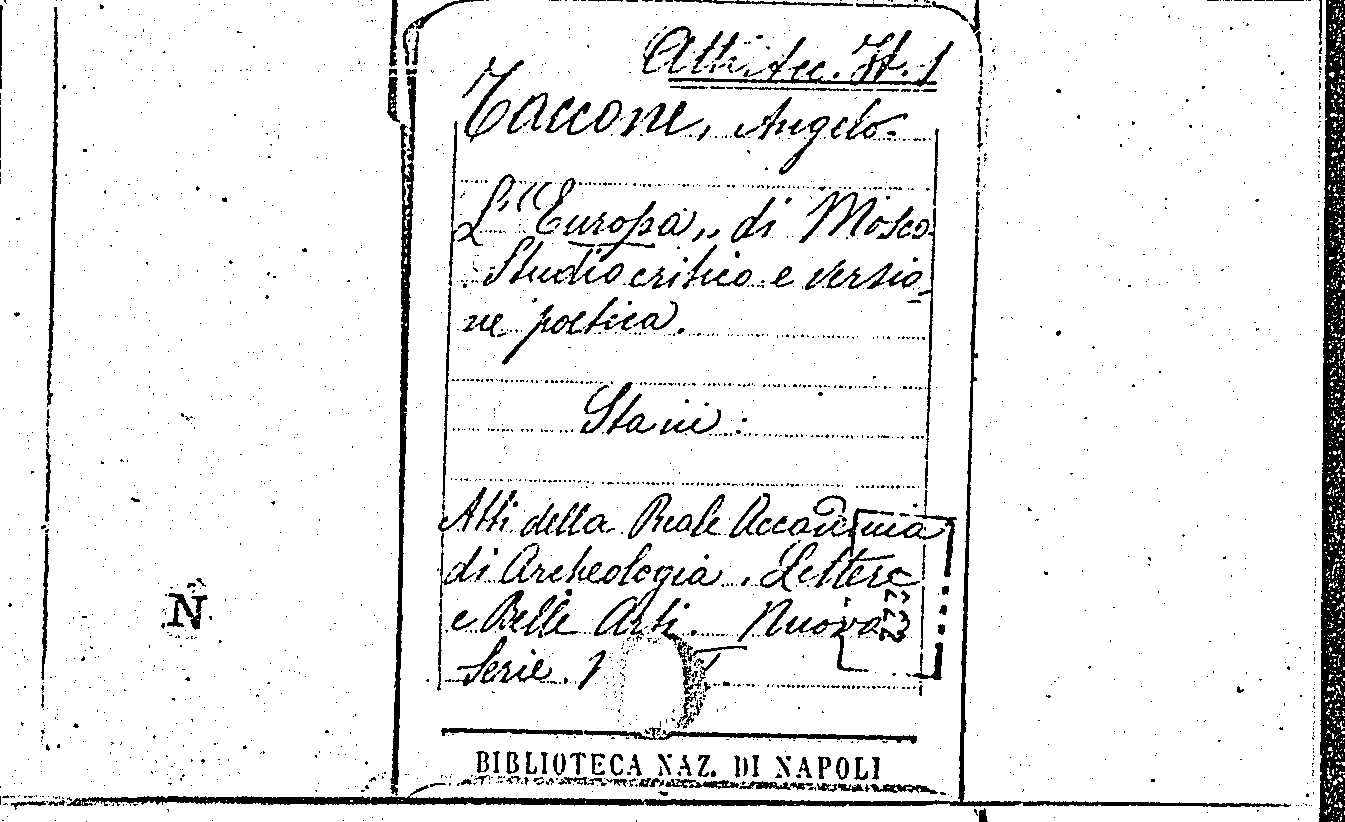 Atti Acc. It. 1
Taccone, Angelo.
L'"Europa,, di Mosco.
Studio critico e versio-
ne poetica.
Sta in:
Atti della Reale Accademia
di Archeologia. Lettere
e Belle Arti. Nuova
Serie. 1
N
BIBLIOTECA NAZ. DI NAPOLI